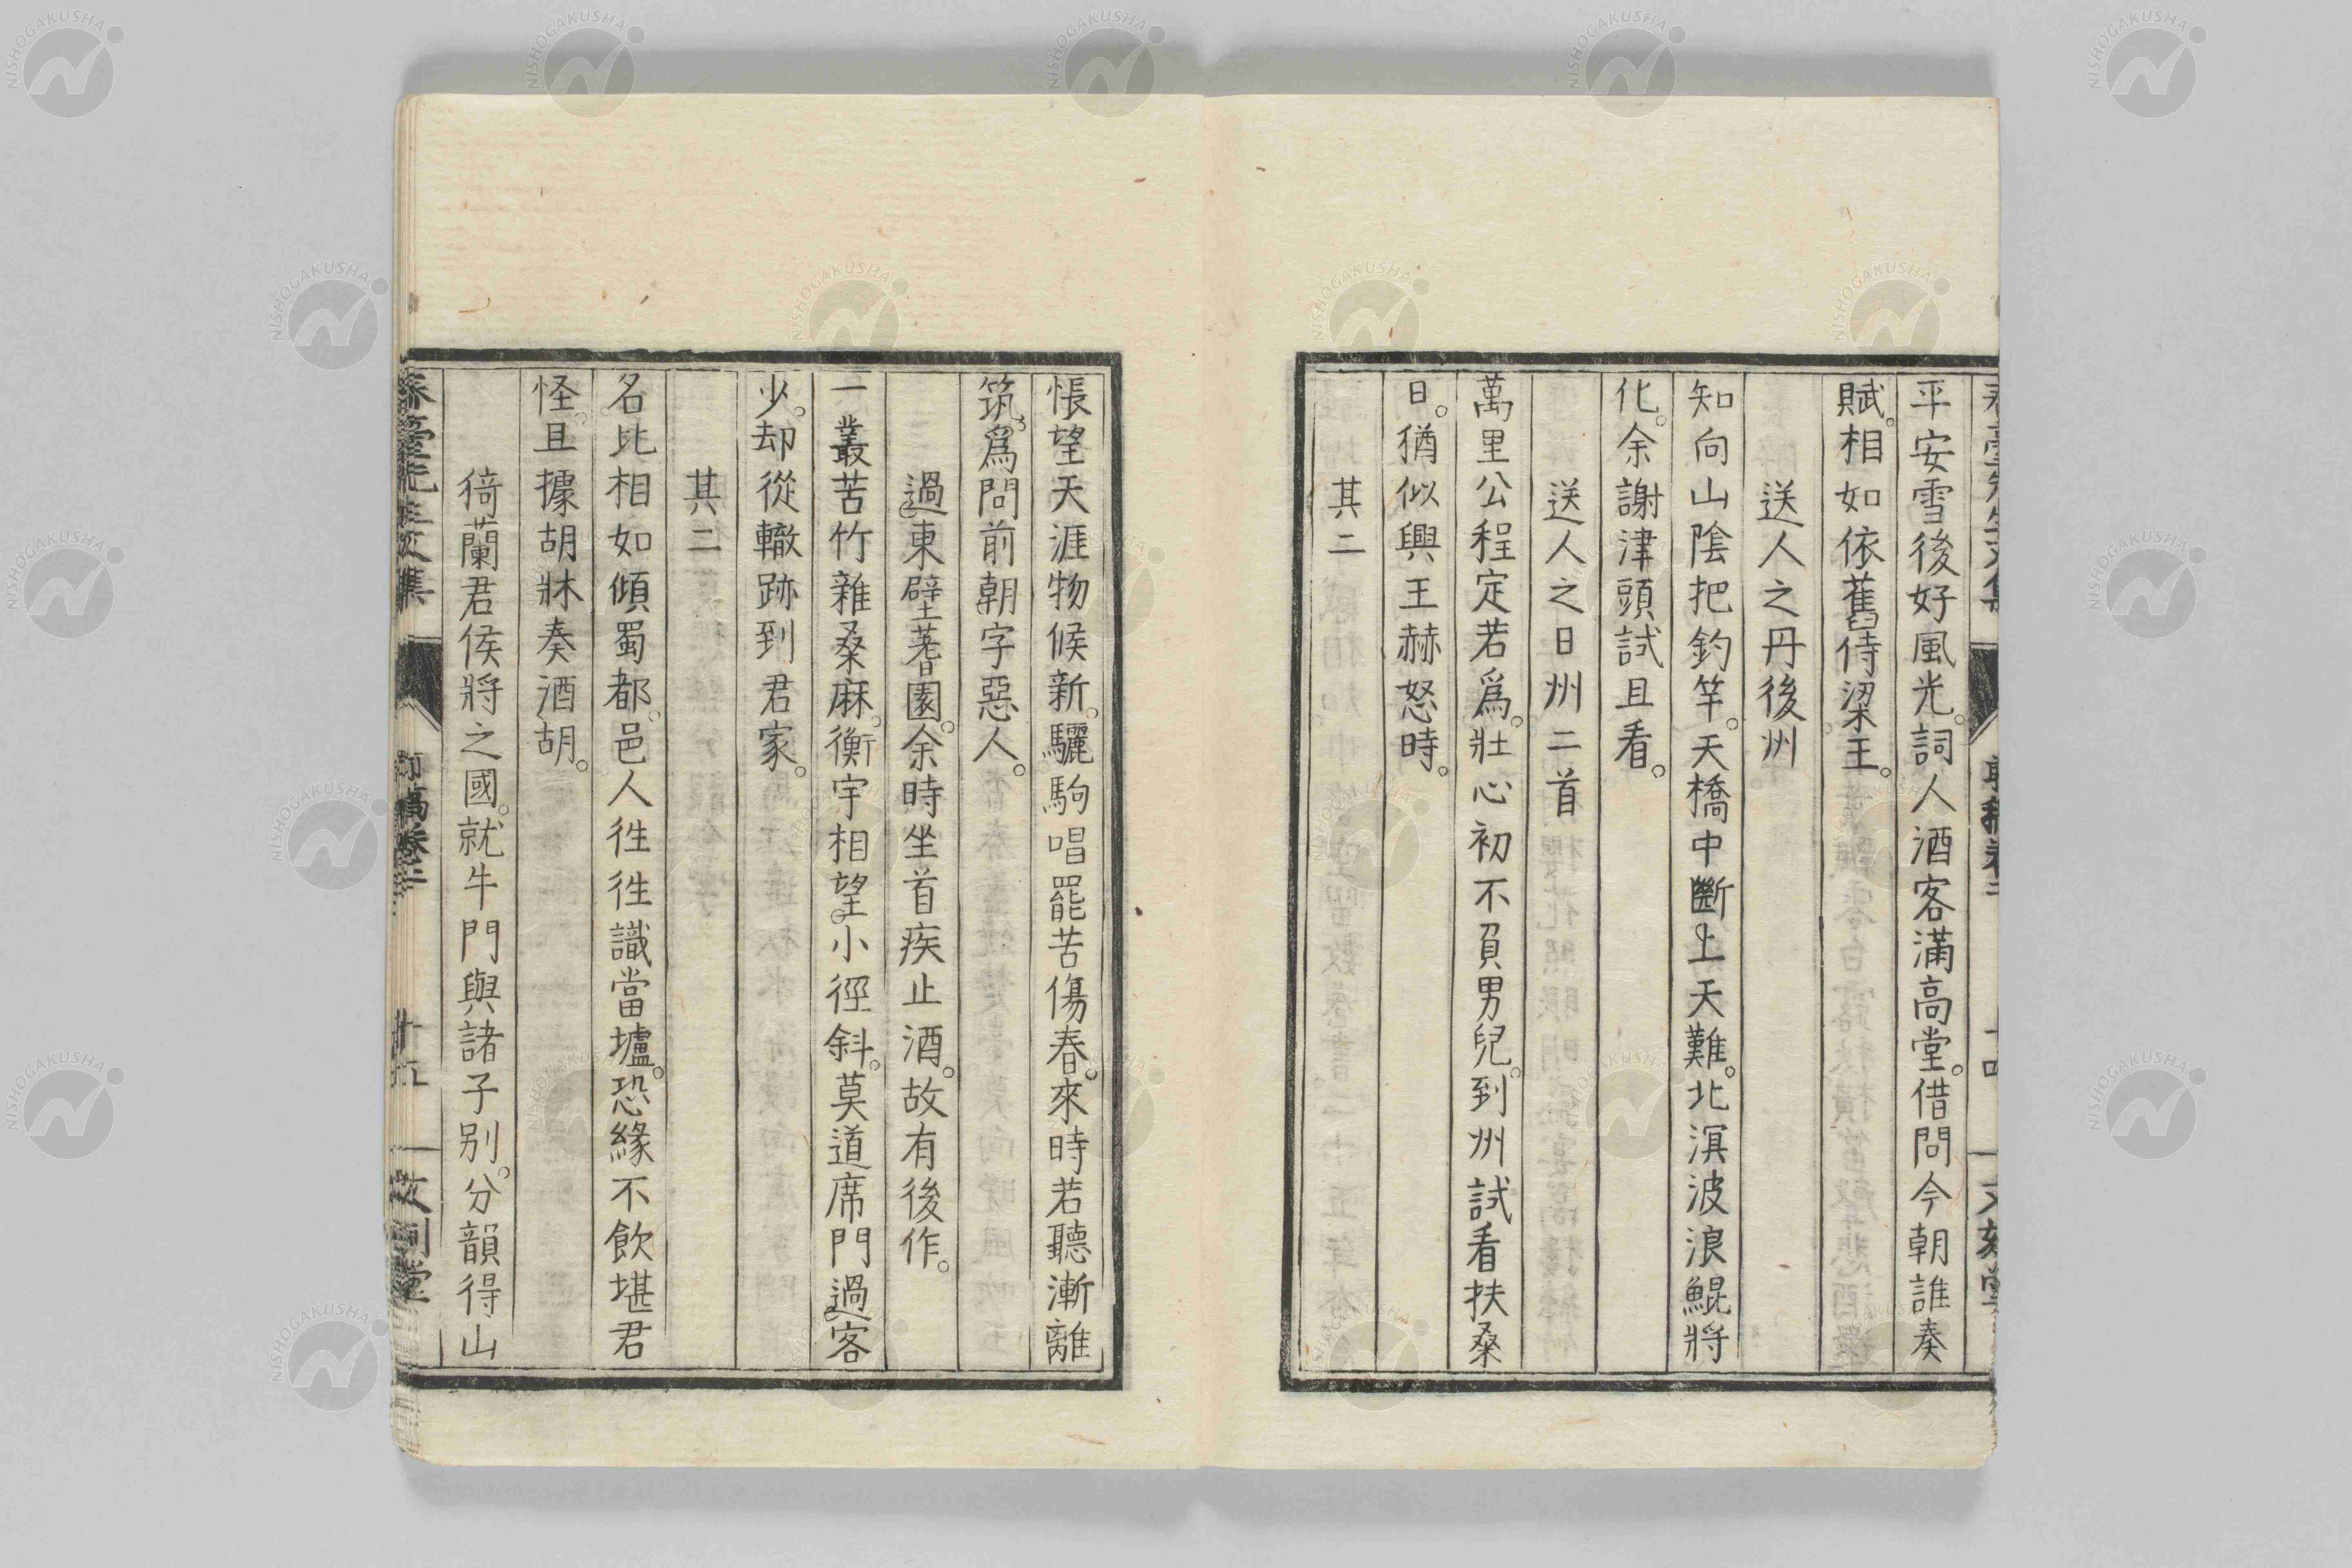 平安雪後好風光。詞人酒客滿高堂。借問今朝誰奏
賦。相如依舊侍梁王。
送人之丹後州
知向山陰把釣竿。天橋中斷上天難。北溟波浪鯤將
化。余謝津頭試且看。
送人之日州二首
萬里公程定若爲。壯心初不負男兒。到州試看扶桑
日。猶似興王赫怒時。
其二
悵望天涯物候新。驪駒唱罷苦傷春。來時若聽漸離
筑。爲問前朝字惡人。
過東壁蓍園。余時坐首疾止酒。故有後作。
一叢苦竹雜桑麻。衡宇相望小徑斜。莫道席門過客
少。却從轍跡到君家。
其二
名比相如傾蜀都。邑人徃徃識當壚。恐緣不飲堪君
怪。且據胡牀奏酒胡。
猗蘭君侯將之國。就牛門與諸子別。分韻得山